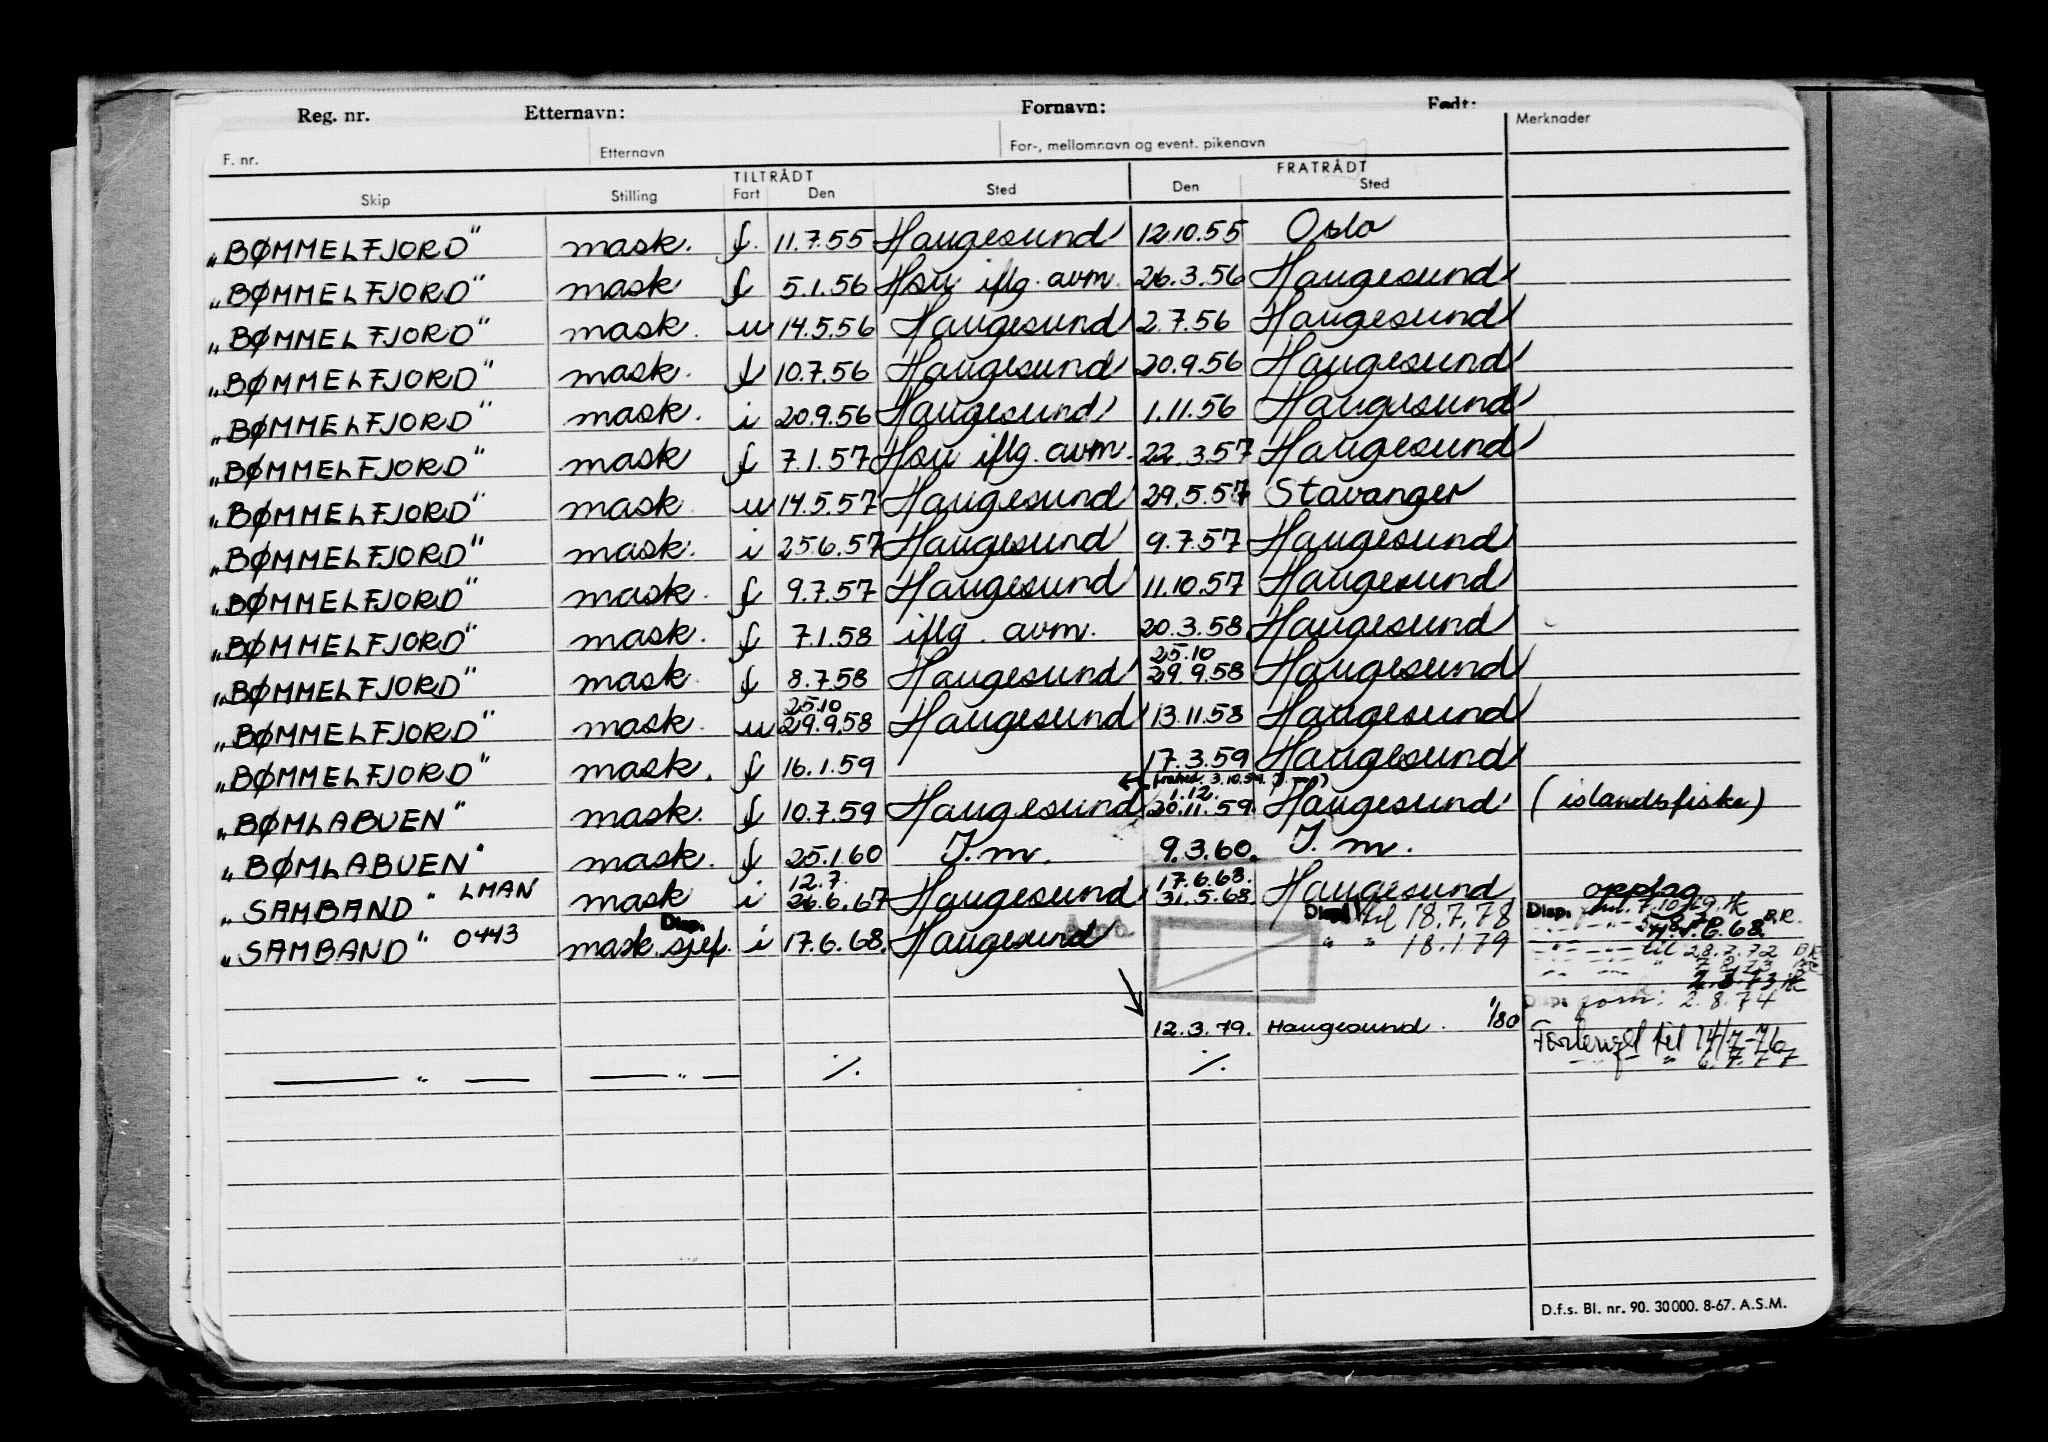 Reg. nr. Etternavn: Fornavn: Født:
F. nr. Etternavn For-, mellomnavn og event. pikenavn Merknader
TILTRÅDT FRATRÅDT
Skip Stilling Fart Den Sted Den Sted
„BØMMELFJORD" mask. f. 11.7.55 Haugesund 12.10.55 Oslo
„BØMMELFJORD" mask f 5.1.56 Hsu iflg. avm. 26.3.56 Haugesund
„BØMMELFJORD" mask. u 14.5.56 Haugesund 2.7.56 Haugesund
„BØMMELFJORD" mask. f 10.7.56 Haugesund 20.9.56 Haugesund
„BØMMELFJORD" mask. i 20.9.56 Haugesund 1.11.56 Haugesund
„BØMMELFJORD" mask f 7.1.57 Hsu iflg. avm. 22.3.57 Haugesund
„BØMMELFJORD" mask u 14.5.57 Haugesund 29.5.57 Stavanger
„BØMMELFJORD" mask. i 25.6.57 Haugesund 9.7.57 Haugesund
„BØMMELFJORD" mask. f 9.7.57 Haugesund 11.10.57 Haugesund
„BØMMELFJORD" mask. f 7.1.58 iflg. avm. 20.3.58 Haugesund
25.10
„BØMMELFJORD" mask f 8.7.58 Haugesund 29.9.58 Haugesund
25.10
„BØMMELFJORD" mask. u 29.9.58 Haugesund 13.11.58 Haugesund
„BØMMELFJORD" mask. f 16.1.59 17.3.59 Haugesund
1.12.
„BØMLABUEN" mask. f 10.7.59 Haugesund 30.11.59. Haugesund (islandsfiske)
„BØMLABUEN" mask. f 25.1.60 I. m. 9.3.60. I. m.
12.7. 17.6.68.
„SAMBAND" LMAN mask i 26.6.67 Haugesund 31.5.68. Haugesund oppdag
Disp. Disp. til 18.7.78 Disp. til 7.10.69. HK
„SAMBAND" 0443 mask.sjef. i 17.6.68. Haugesund " " 18.1.79
til 28.7.72
Disp. fom: 2.8.74
12.3.79. Haugesund. 1/80
Forlenget til 14/7-76
— " — — " — ./. ./. — " — 6.7.77
D.f.s. Bl. nr. 90. 30000. 8-67. A.S.M.